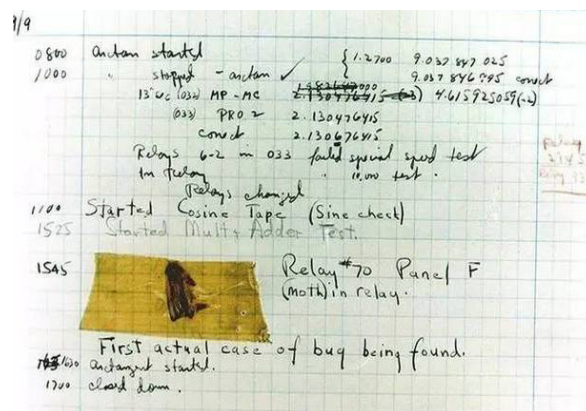 9/9
0800 antan started { 1.2700 9.037 847 025
1000 " stopped - antan ✓ 9.037 846 995 correct
13"uc (032) MP-MC 2.130476415 4.615925059(-2)
(033) PRO 2 2.130476415
correct 2.130676415
Relays 6-2 in 033 failed special speed test
In Relay " 10,000 test.
Relays changed
1100 Started Cosine Tape (Sine check)
1525 Started Mult + Adder Test.
1545 Relay #70 Panel F
(moth) in relay.
First actual case of bug being found.
1630 antangent started.
1700 closed down.
Relay